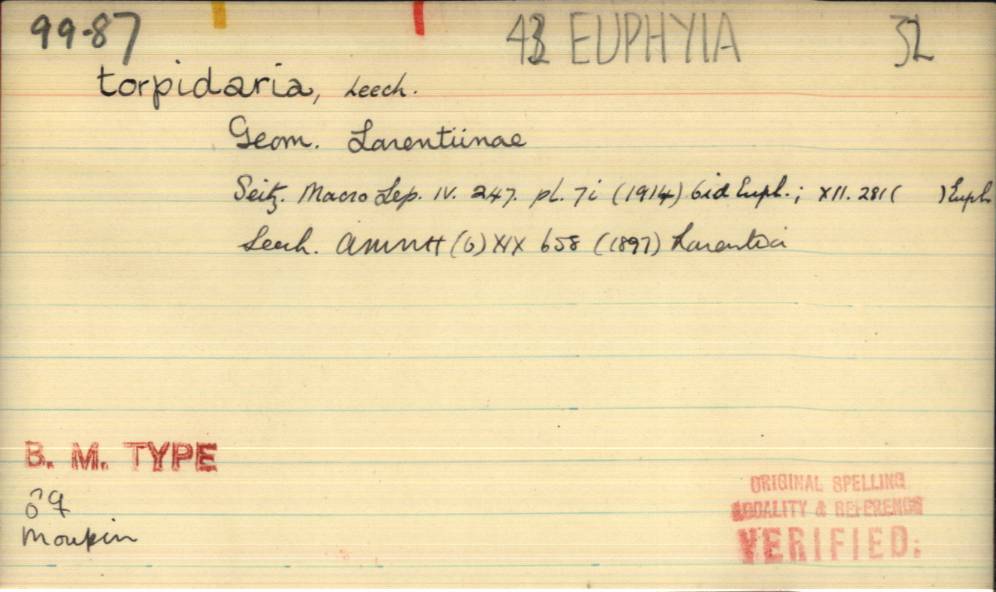 99-87 43 EUPHYIA 32
torpidaria, Leech.
Geom. Larentiinae
Seitz. Macro Lep. IV. 247. pl. 7i (1914) Cid Euph.; XII. 281 ( ) Euph
Leech. AMNH (6) XIX 658 (1897) Larentia
B. M. TYPE
♂♀
Moupin
ORIGINAL SPELLING
LOCALITY & REFERENCE
VERIFIED: